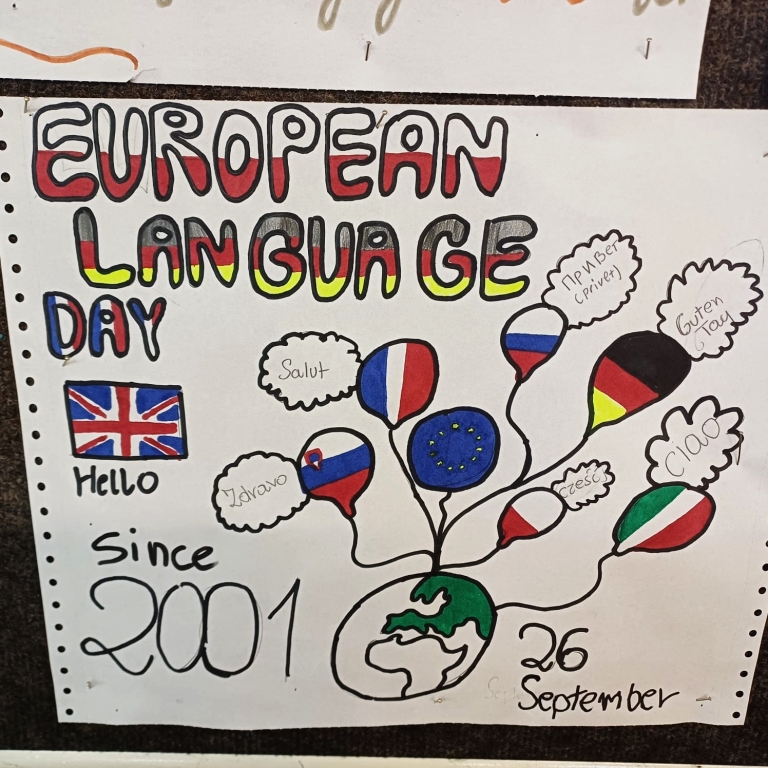 EUROPEAN
LANGUAGE
DAY
Привет
(privet)
Guten
Tag
Salut
Ciao
Hello
Zdravo
cześć
Since
2001
26
September